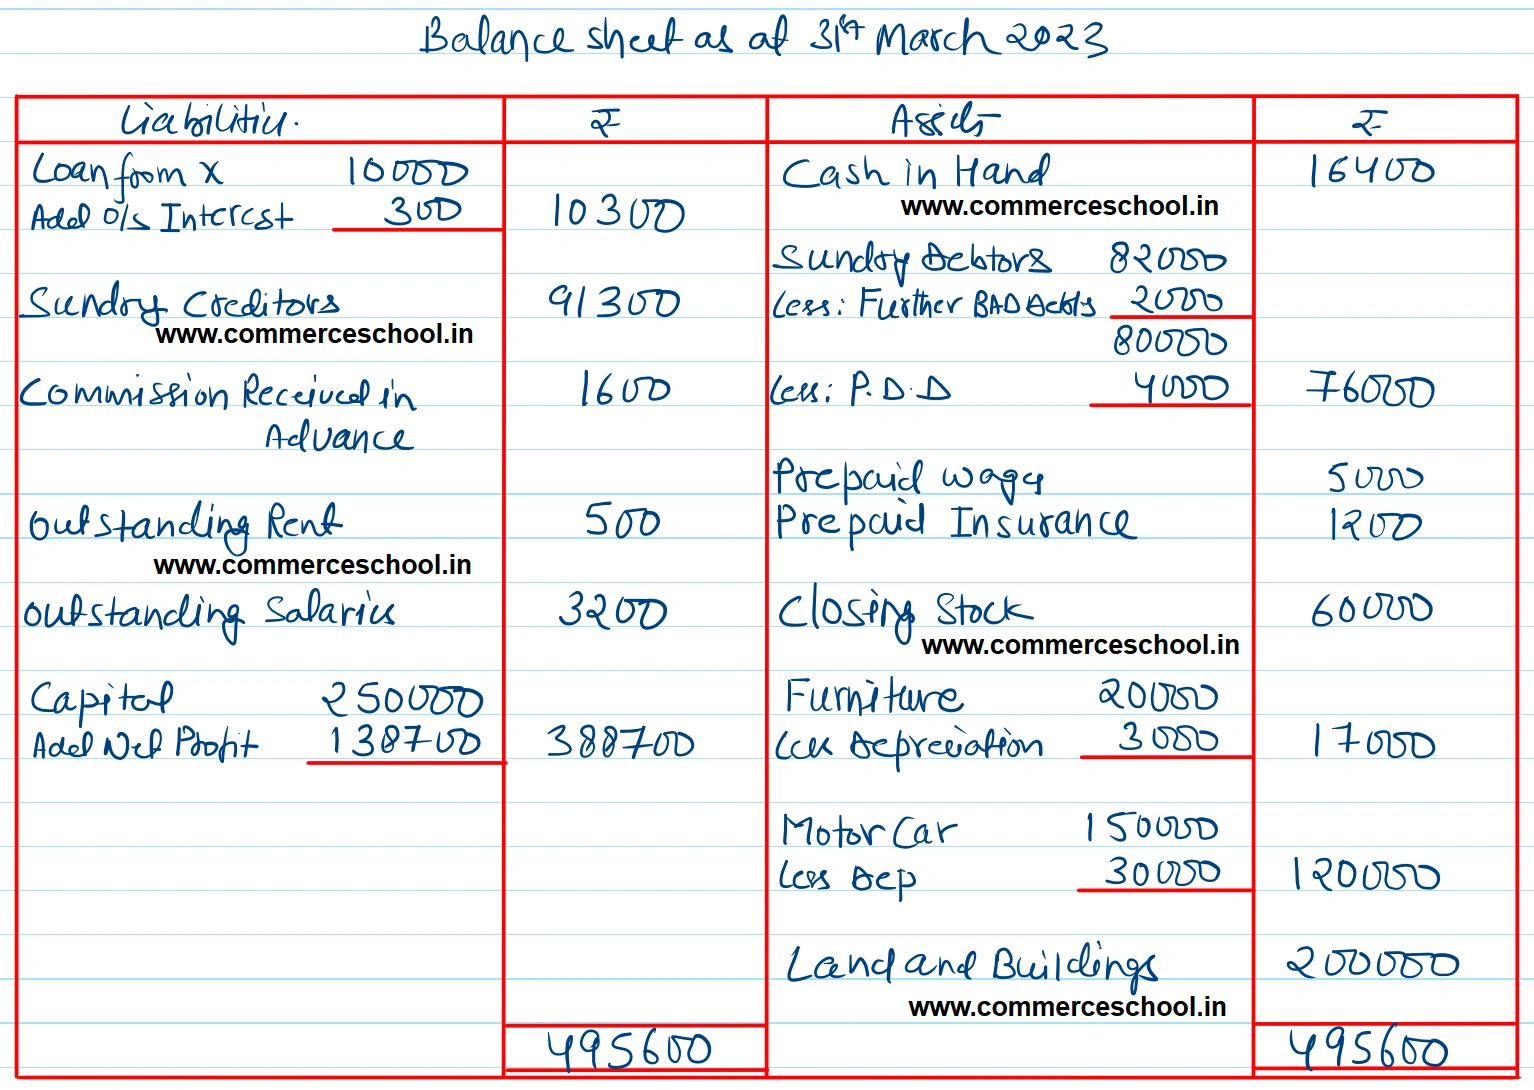 Balance sheet as at 31st March 2023
Liabilities. ₹ Assets ₹
Loan from X 10000 Cash in Hand 16400
www.commerceschool.in
Add o/s Interest 300 10300
Sundry Debtors 82000
Sundry Creditors 91300 Less: Further BAD Debts 2000
www.commerceschool.in
80000
Commission Received in 1600 Less: P.D.D 4000 76000
Advance
Prepaid wages 5000
Outstanding Rent 500 Prepaid Insurance 1200
www.commerceschool.in
Outstanding Salaries 3200 Closing Stock 60000
www.commerceschool.in
Capital 250000 Furniture 20000
Add Net Profit 138700 388700 Less Depreciation 3000 17000
Motor Car 150000
Less Dep 30000 120000
Land and Buildings 200000
www.commerceschool.in
495600 495600